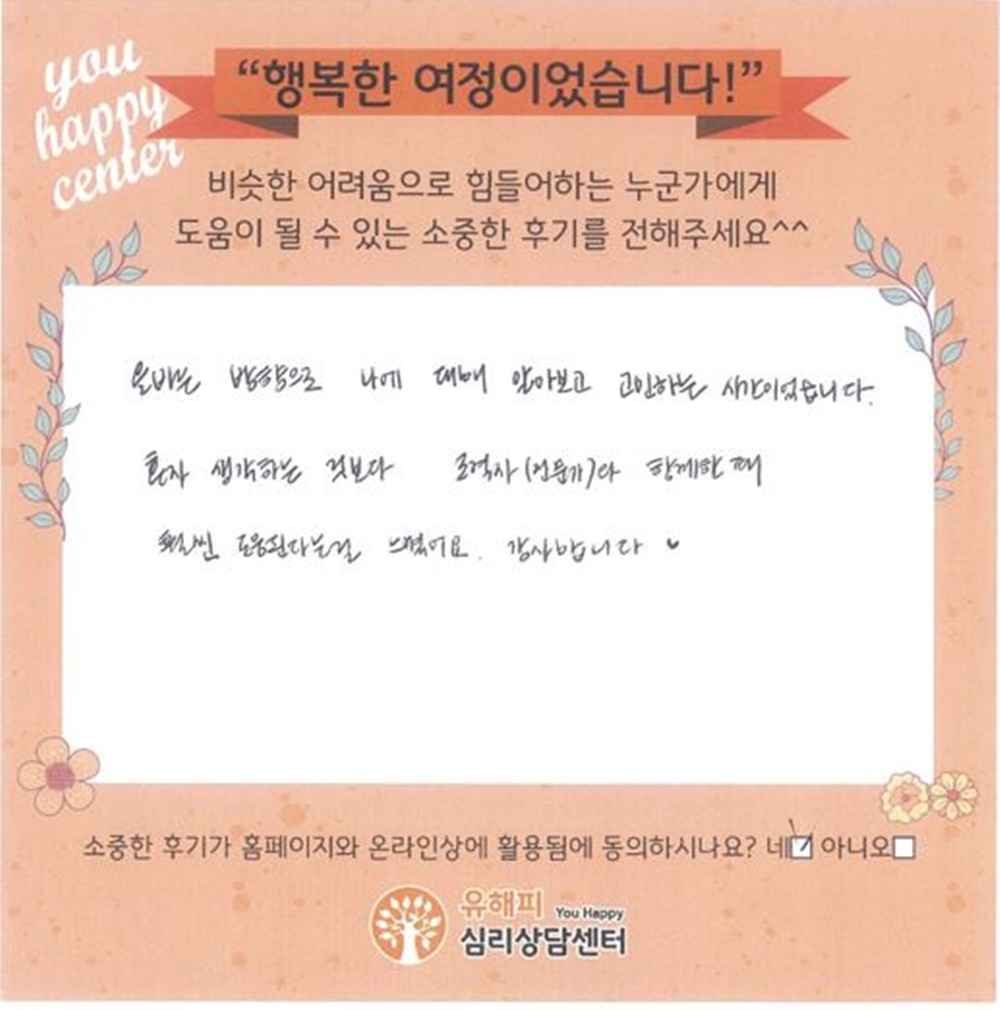 you
happy
center
“행복한 여정이었습니다!”
비슷한 어려움으로 힘들어하는 누군가에게
도움이 될 수 있는 소중한 후기를 전해주세요^^
올바른 방향으로 나에 대해 알아보고 고민하는 시간이었습니다.
혼자 생각하는 것보다 조력자(전문가)와 함께할 때
훨씬 도움된다는걸 느꼈어요. 감사합니다 ♥
소중한 후기가 홈페이지와 온라인상에 활용됨에 동의하시나요? 네☑ 아니오☐
유해피 You Happy
심리상담센터